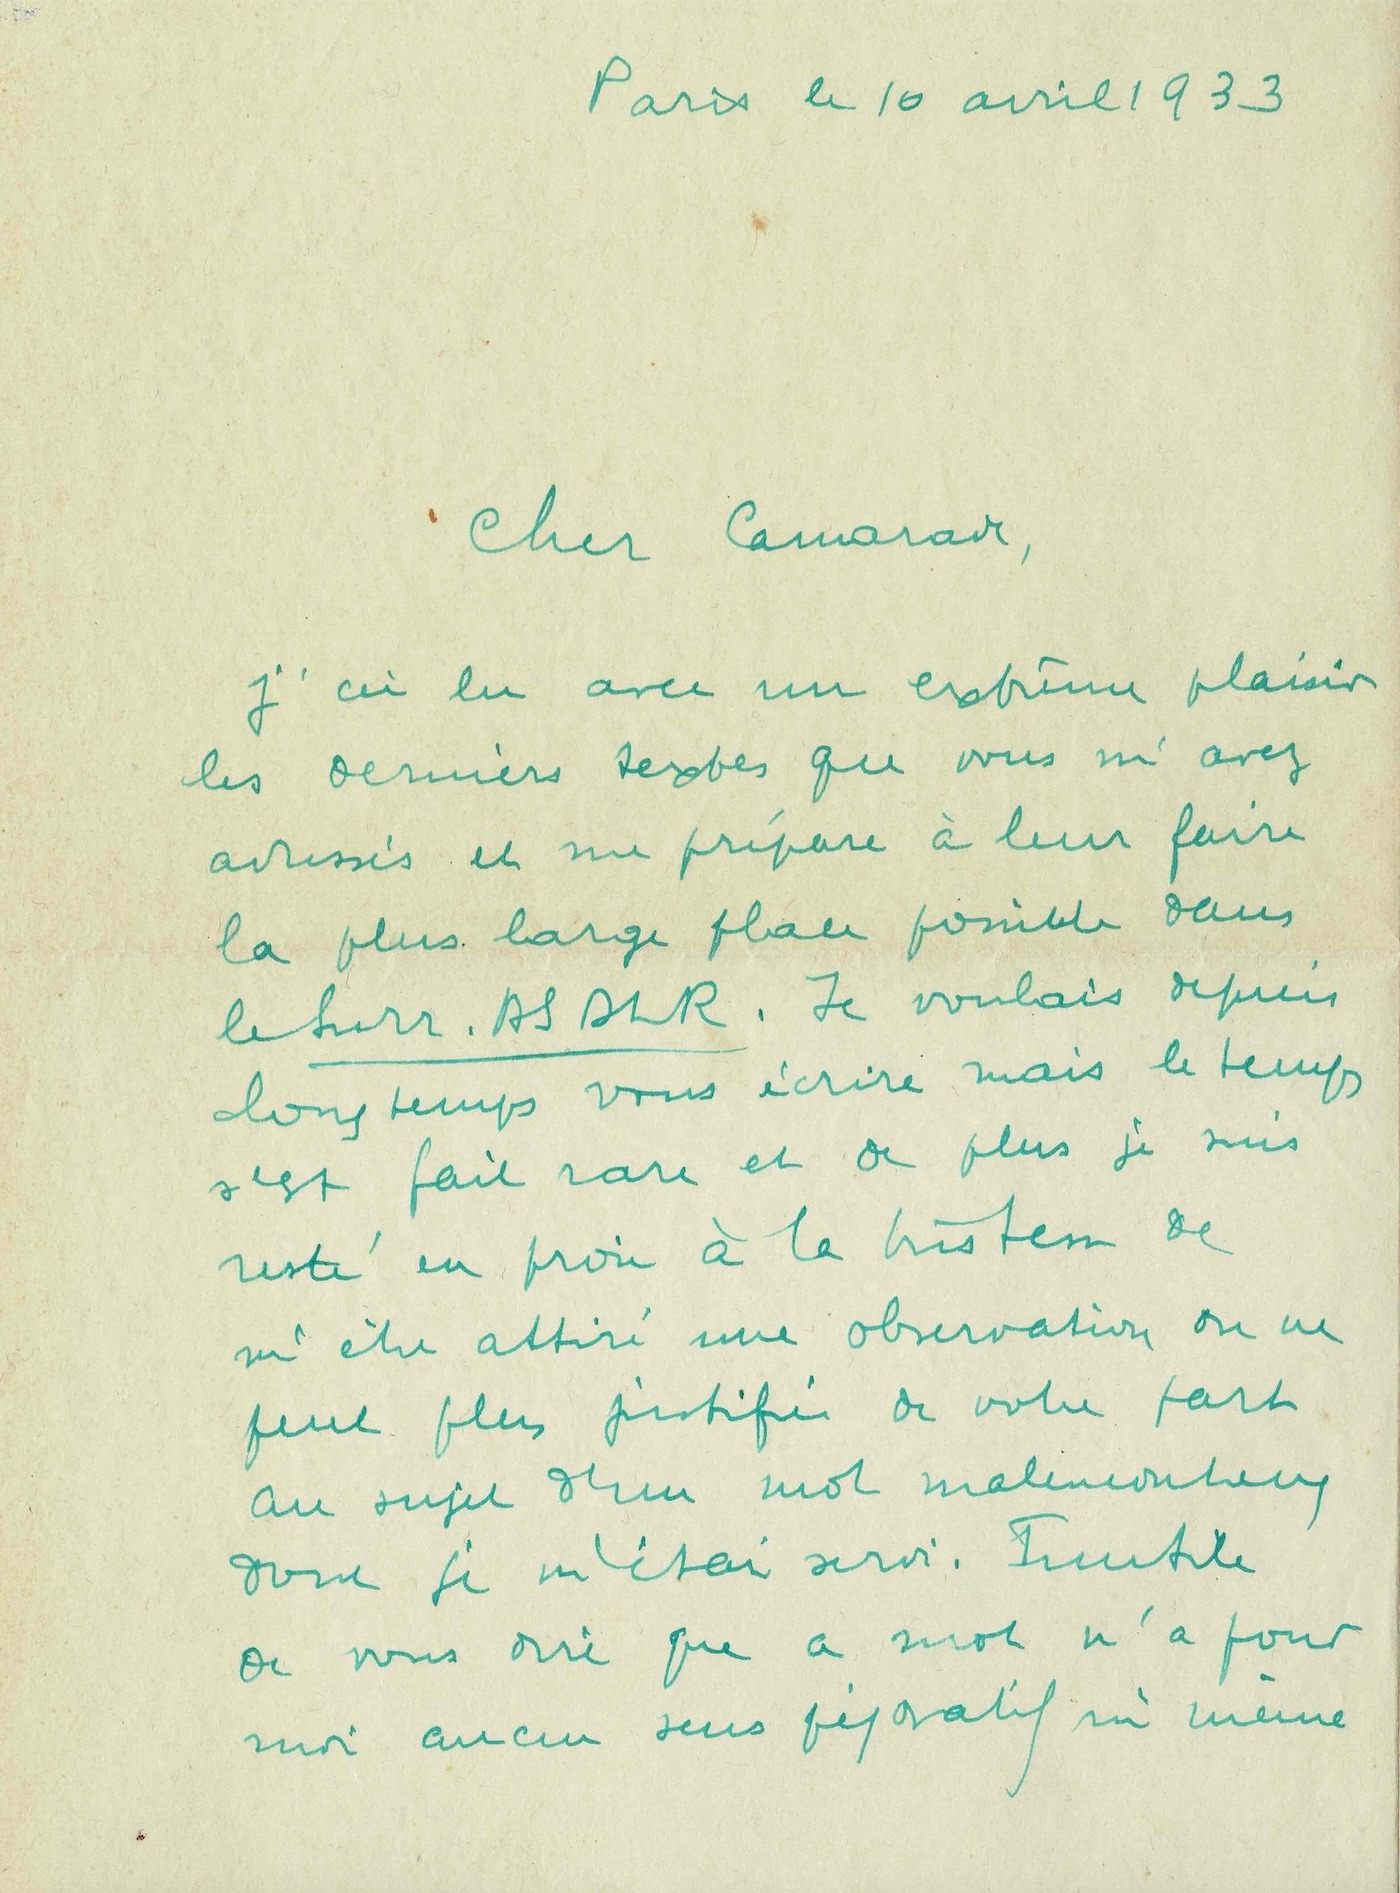 Paris le 10 avril 1933
Cher Camarade,
J'ai lu avec un extrême plaisir
les derniers textes que vous m'avez
adressés et me prépare à leur faire
la plus large place possible dans
le Surr. ASDLR. Je voulais depuis
longtemps vous écrire mais le temps
s'est fait rare et de plus je suis
resté en proie à la tristesse de
m'être attiré une observation on ne
peut plus justifiée de votre part
au sujet d'un mot malencontreux
dont je m'étais servi. Inutile
de vous dire que ce mot n'a pour
moi aucun sens péjoratif ni même